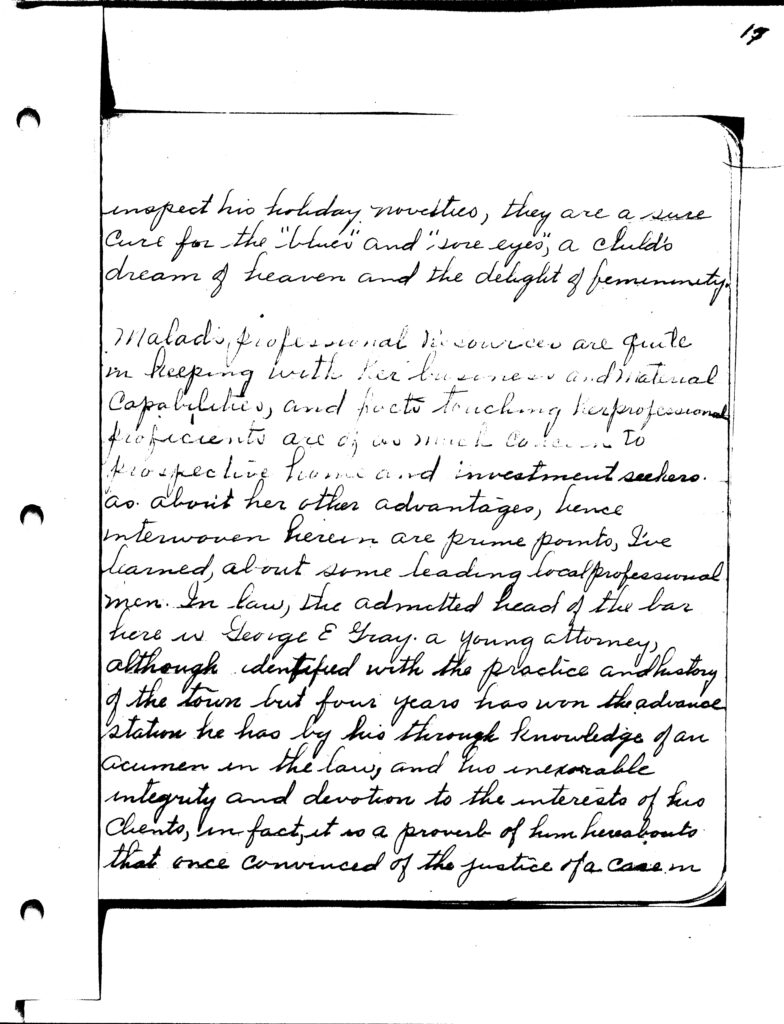 13
inspect his holiday novelties, they are a sure
cure for the "blues" and "sore eyes", a child's
dream of heaven and the delight of femininity.
Malad's, professional resources are quite
in keeping with her business and material
capabilities, and facts touching her professional
proficients are of as much concern to
prospective home and investment seekers.
as about her other advantages, hence
interwoven herein are prime points, I've
learned, about some leading local professional
men. In law, the admitted head of the bar
here is George E Gray. a young attorney,
although identified with the practice and history
of the town but four years has won the advance
station he has by his through knowledge of an
acumen in the law, and his inexorable
integrity and devotion to the interests of his
clients, in fact, it is a proverb of him hereabouts
that once convinced of the justice of a case in